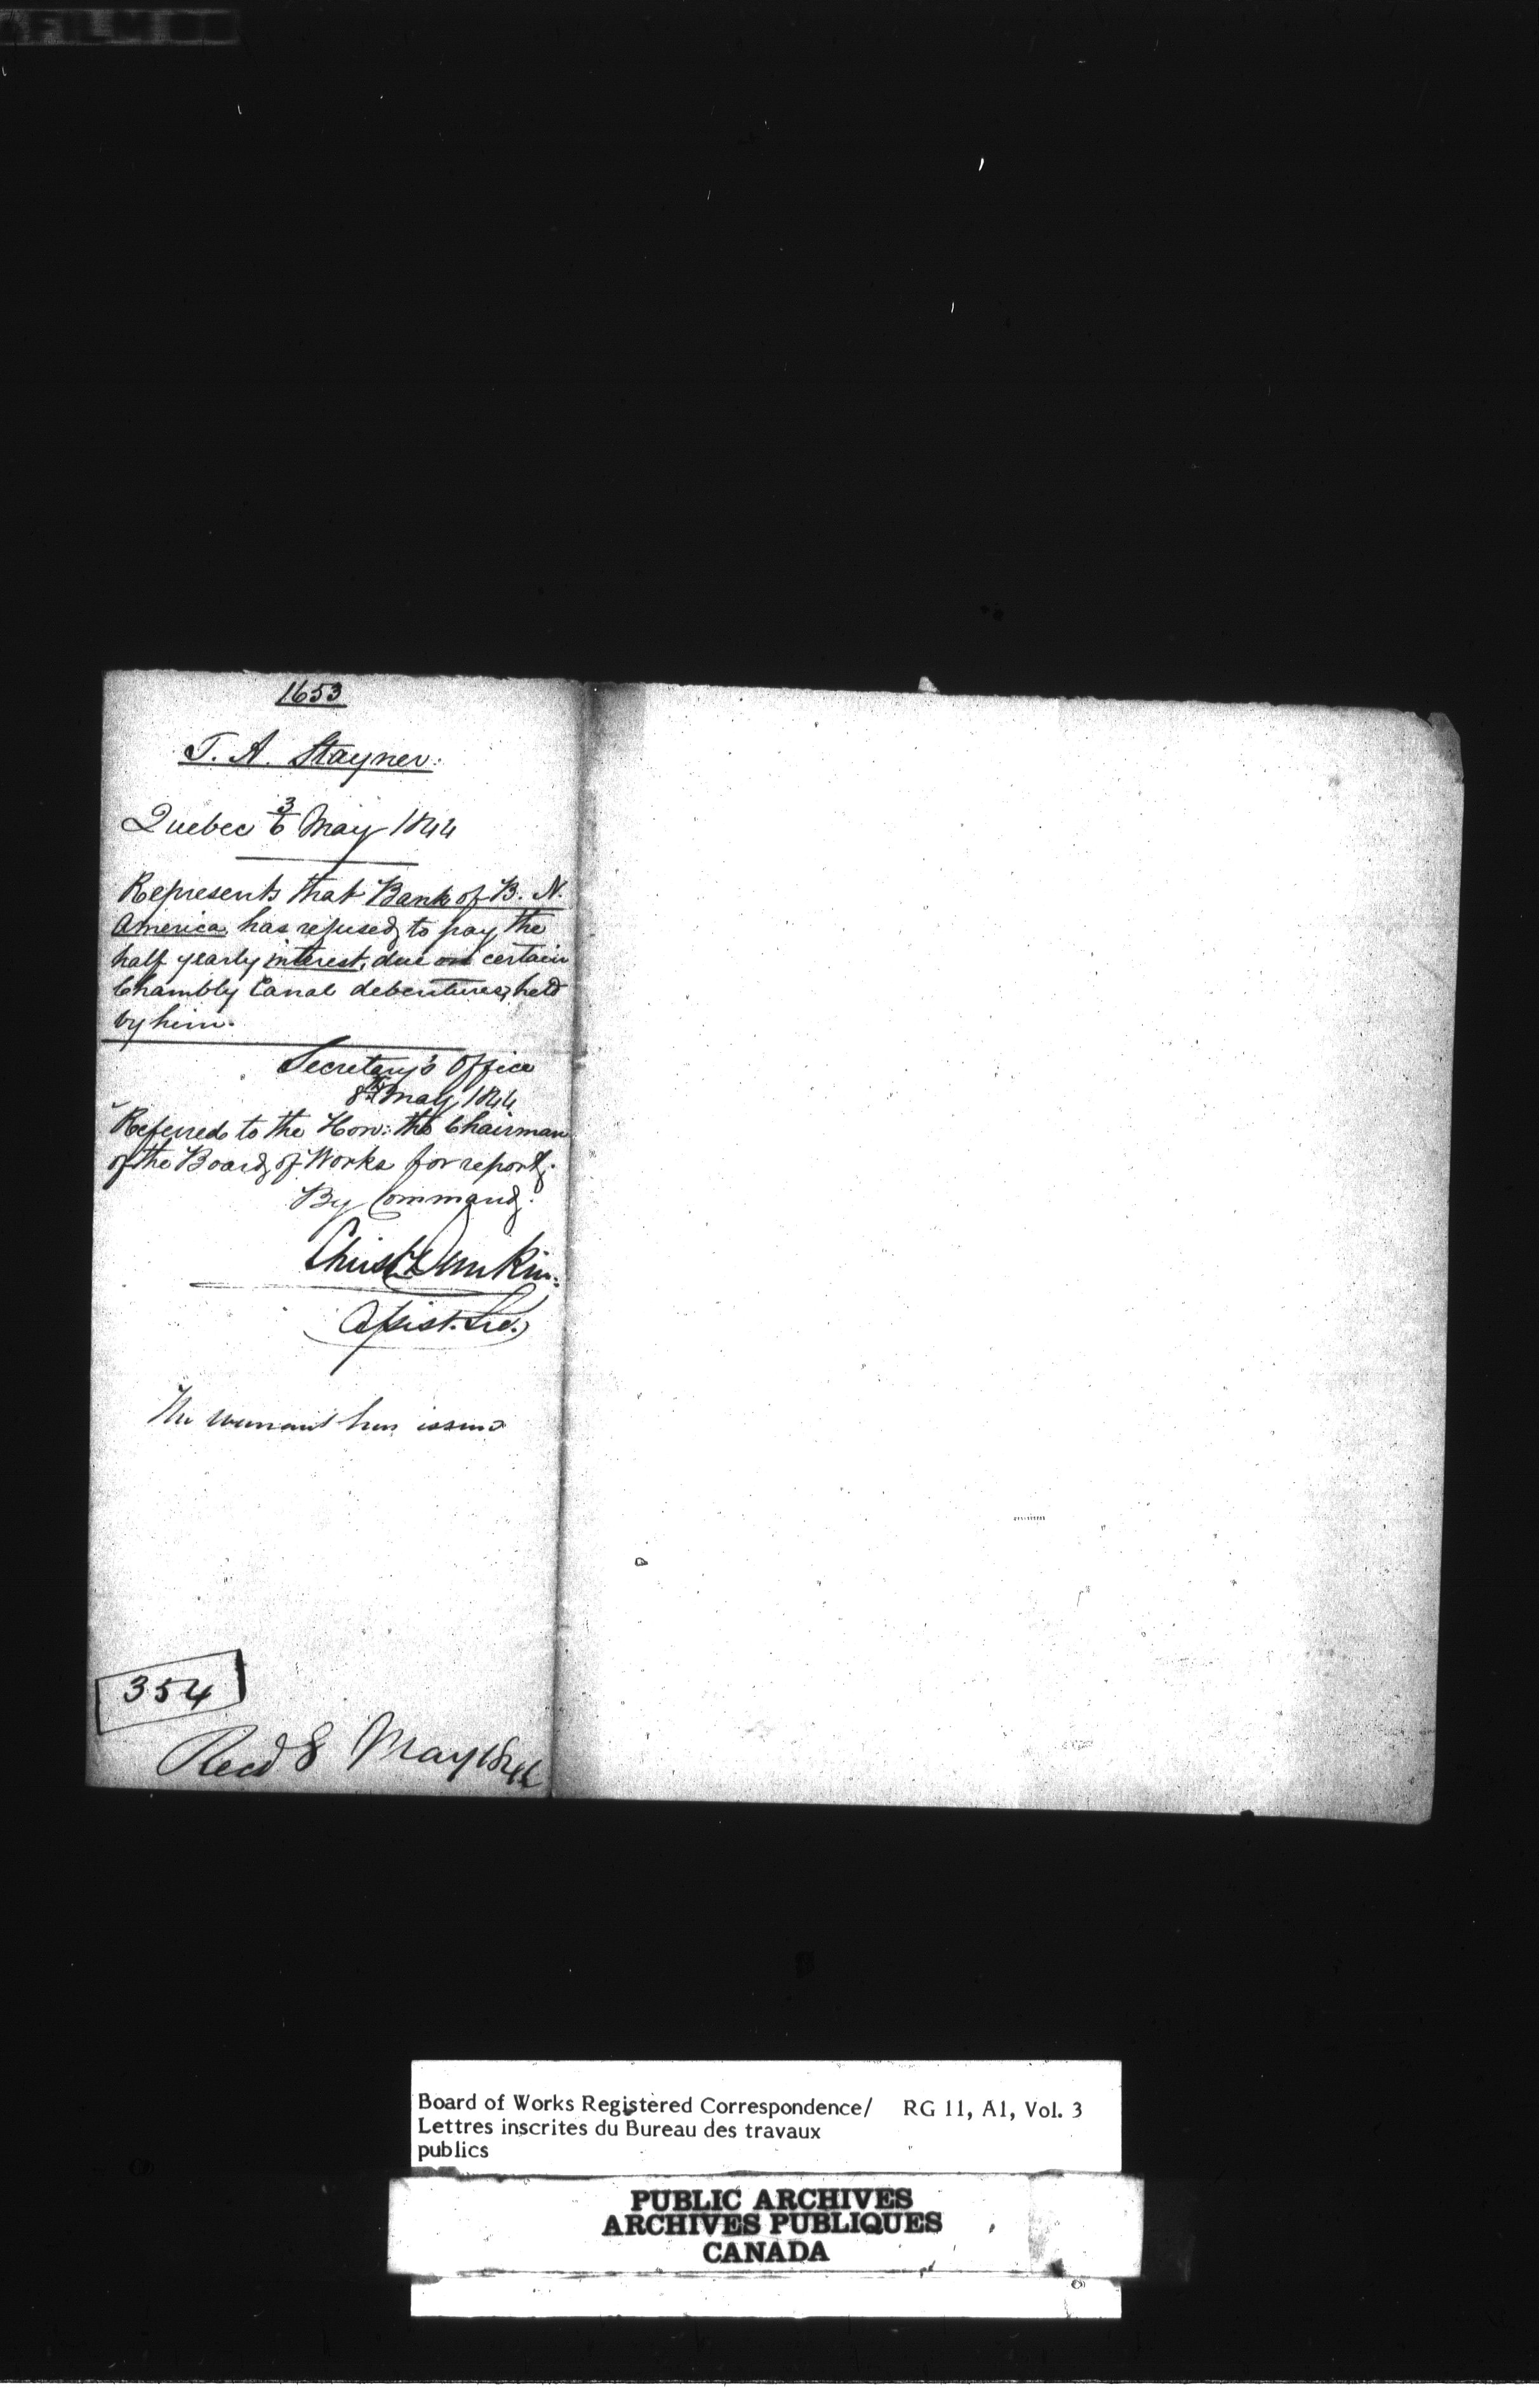 1653
T. A. Stayner.
3
Quebec 6 May 1844
Represents that Bank of B. N.
America has refused to pay the
half yearly interest, due on certain
Chambly Canal debentures, held
by him.
Secretary's Office
8th May 1844
Referred to the Hon: the Chairman
of the Board of Works for report.
By Command.
Christ. Dunkin.
Assist. Sec.
The warrant has issued
354
Recd 8 May 1844
Board of Works Registered Correspondence/ RG 11, A1, Vol. 3
Lettres inscrites du Bureau des travaux
publics
PUBLIC ARCHIVES
ARCHIVES PUBLIQUES
CANADA